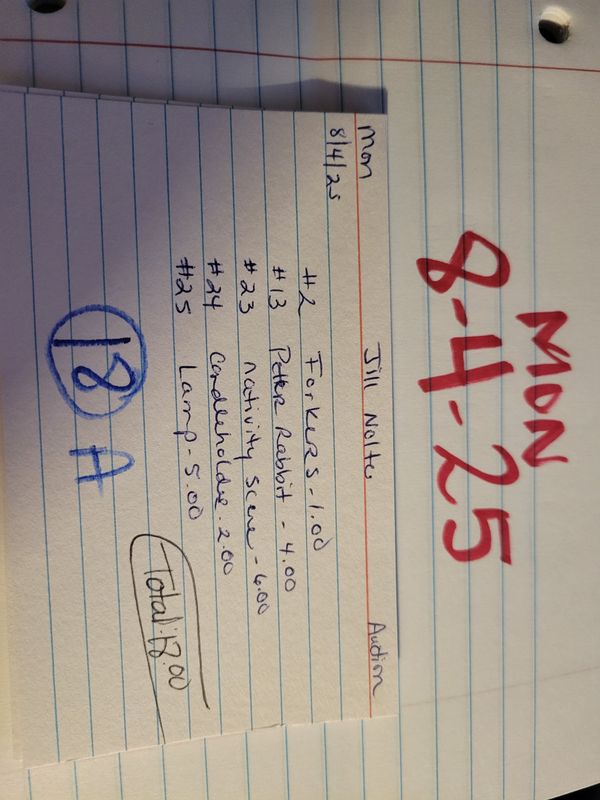 MON
8-4-25
Mon Jill Nolte Auction
8/4/25
#2 Forkers - 1.00
#13 Peter Rabbit - 4.00
#23 nativity Scene - 6.00
#24 Candleholder - 2.00
#25 Lamp - 5.00
Total:
18 A